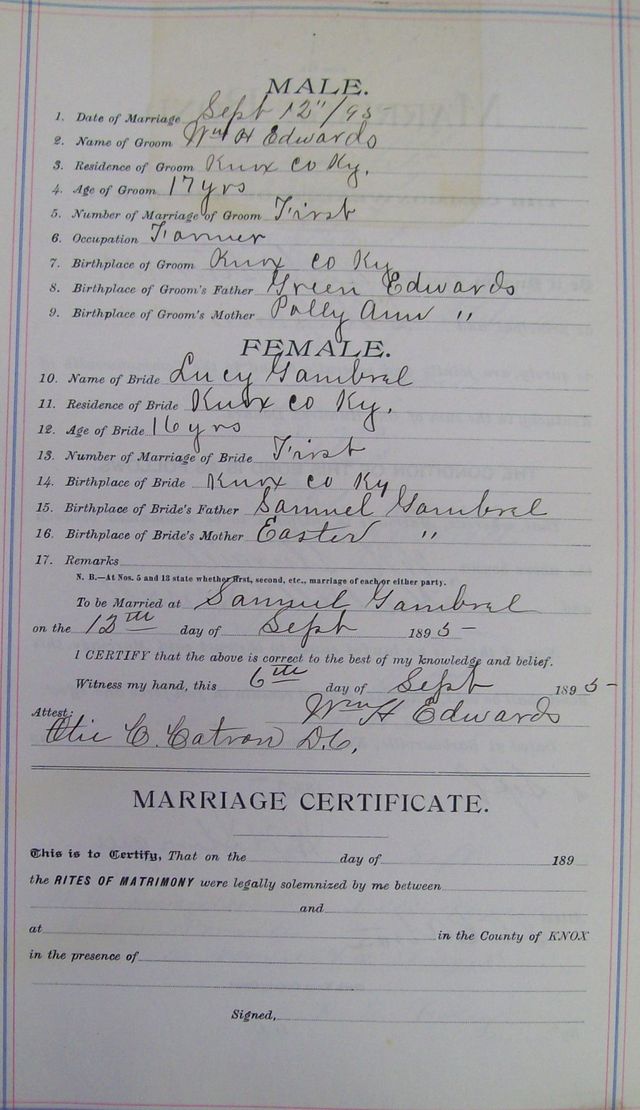 MALE.
1. Date of Marriage Sept 12"/95
2. Name of Groom Wm H Edwards
3. Residence of Groom Knox Co Ky.
4. Age of Groom 17 yrs
5. Number of Marriage of Groom First
6. Occupation Farmer
7. Birthplace of Groom Knox Co Ky
8. Birthplace of Groom's Father Green Edwards
9. Birthplace of Groom's Mother Polly Ann "
FEMALE.
10. Name of Bride Lucy Gambrel
11. Residence of Bride Knox Co Ky.
12. Age of Bride 16 yrs
13. Number of Marriage of Bride First
14. Birthplace of Bride Knox Co Ky
15. Birthplace of Bride's Father Samuel Gambrel
16. Birthplace of Bride's Mother Easter "
17. Remarks
N. B.—At Nos. 5 and 13 state whether first, second, etc., marriage of each or either party.
To be Married at Samuel Gambrel
on the 12th day of Sept 1895
I CERTIFY that the above is correct to the best of my knowledge and belief.
Witness my hand, this 6th day of Sept 1895
Wm H Edwards
Attest:
C. Catron D.C.
MARRIAGE CERTIFICATE.
This is to Certify, That on the day of 189
the RITES OF MATRIMONY were legally solemnized by me between
and
at in the County of KNOX
in the presence of
Signed,